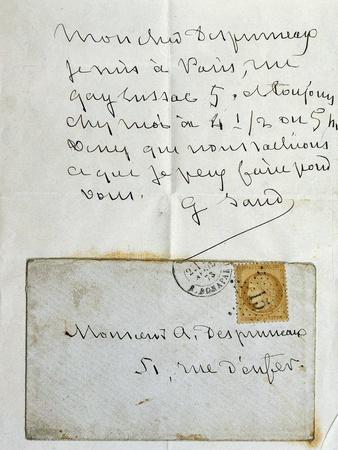 Mon cher Despruneaux
je suis à Paris, rue
gay lussac 5. et toujours
chez moi à 4 1/2 ou 5 h.
Venez que nous
ce que je peux faire pour
vous. G Sand
R. BONAPAR
73
15
Monsieur A. Despruneaux
51, rue d'enfer.